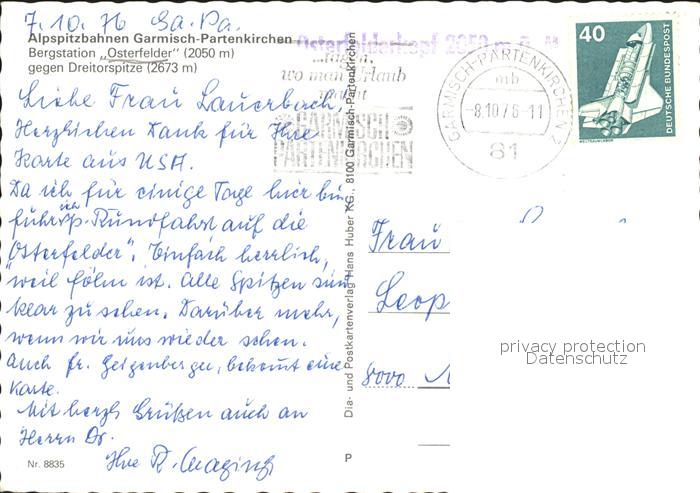 7.10.76 Ga.Pa.
Alpspitzbahnen Garmisch-Partenkirchen
Bergstation „Osterfelder" (2050 m)
gegen Dreitorspitze (2673 m)
Osterfelderkopf 2050 m ü.
wo man Urlaub
macht
GARMISCH
PARTENKIRCHEN
GARMISCH-PARTENKIRCHEN 2
mb
-8.10.76-11
81
40
DEUTSCHE BUNDESPOST
WELTRAUMLABOR
Liebe Frau Lauerbach,
Herzlichen Dank für Ihre
Karte aus USA.
Da ich für einige Tage hier bin
führ ich Rundfahrt auf die
"Osterfelder". Einfach herrlich,
weil föhn ist. Alle Spitzen sind
klar zu sehen. Darüber mehr,
wenn wir uns wieder sehen.
Auch Fr. Geigenberger, bekommt eine
Karte.
Mit herzl. Grüßen auch an
Herrn Dr.
Ihre R.
Nr. 8835
Dia- und Postkartenverlag Hans Huber KG., 8100 Garmisch-Partenkirchen
P
Frau
Leop
8000
privacy protection
Datenschutz